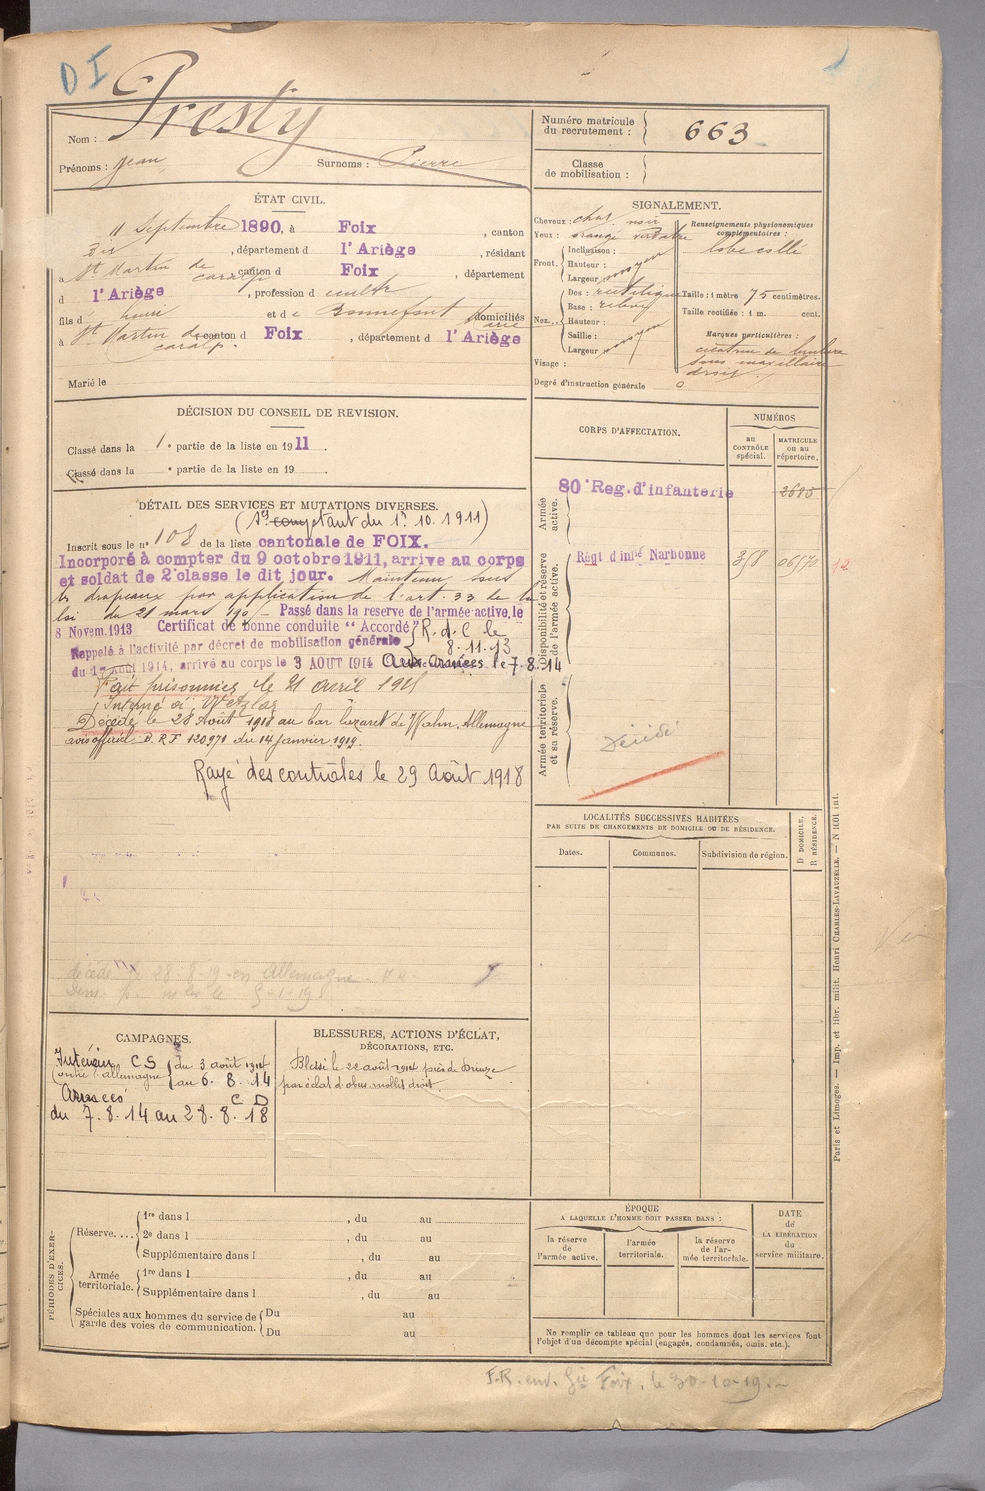 DI
Presty
Nom :
Prénoms : Jean Surnoms : Pierre
Numéro matricule du recrutement : 663
Classe de mobilisation :
ÉTAT CIVIL.
11 Septembre 1890, à Foix, canton
, département d l'Ariège, résidant
à St Martin de caralp canton d Foix, département
d l'Ariège, profession d cultr
fils d et de Bonnefont Marie domiciliés
à St Martin de caralp. canton d Foix, département d l'Ariège
Marié le
SIGNALEMENT.
Cheveux : chat. noir
Yeux : orangé verdâtre
Front. Inclinaison :
Hauteur : moyen
Largeur
Nez... Dos : rectiligne
Base : relevé
Hauteur :
Saillie :
Largeur moyen
Visage :
Degré d'instruction générale 0
Renseignements physionomiques complémentaires :
lobe collé
Taille : 1 mètre 75 centimètres.
Taille rectifiée : 1 m. cent.
Marques particulières :
cicatrice de brulure
sous maxillaire
droit
DÉCISION DU CONSEIL DE REVISION.
Classé dans la 1e partie de la liste en 1911.
Classé dans la e partie de la liste en 19
DÉTAIL DES SERVICES ET MUTATIONS DIVERSES.
(Sce comptant du 1er 10. 1911)
Inscrit sous le n° 108 de la liste cantonale de FOIX.
Incorporé à compter du 9 octobre 1911, arrive au corps
et soldat de 2e classe le dit jour. Maintenu sous
les drapeaux par application de l'art. 33 de la
loi du 21 mars 190 - Passé dans la reserve de l'armée active, le
8 Novem. 1913 Certificat de bonne conduite "Accordé" R. d. C le
8. 11. 13
Rappelé à l'activité par décret de mobilisation générale
du 1er Août 1914, arrivé au corps le 3 AOUT 1914 Aux Armées le 7. 8. 14
Fait prisonnier le 21 avril 1918
Interné à Wetzlar
Décédé le 28 Août 1918 au bar lazaret de Wahn. Allemagne
avis officiel D. R F 120971 du 14 Janvier 1919.
Rayé des contrôles le 29 Août 1918
décédé le 28-8-19 en Allemagne
CORPS D'AFFECTATION.
NUMÉROS
AU CONTRÔLE spécial.
MATRICULE OU AU répertoire.
Armée active.
80e Reg. d'infanterie 2685
Disponibilité et réserve de l'armée active.
Régt d'infie Narbonne 358 06570 12
Armée territoriale et sa réserve.
Décédé
LOCALITÉS SUCCESSIVES HABITÉES
PAR SUITE DE CHANGEMENTS DE DOMICILE OU DE RÉSIDENCE.
Dates. Communes. Subdivision de région. D DOMICILE. R RÉSIDENCE.
CAMPAGNES.
Intérieur C S du 3 août 1914
contre l'allemagne au 6. 8. 14
Armées C D
du 7. 8. 14 au 28. 8. 18
BLESSURES, ACTIONS D'ÉCLAT, DÉCORATIONS, ETC.
Blessé le 22 août 1914 près de Dieuze
par éclat d'obus mollet droit.
PÉRIODES D'EXERCICES.
Réserve.... 1re dans l , du au
2e dans l , du au
Supplémentaire dans l , du au
Armée territoriale. 1re dans l , du au
Supplémentaire dans l , du au
Spéciales aux hommes du service de garde des voies de communication. Du au
Du au
ÉPOQUE
A LAQUELLE L'HOMME DOIT PASSER DANS :
la réserve de l'armée active.
l'armée territoriale.
la réserve de l'armée territoriale.
DATE de LA LIBÉRATION du service militaire.
Ne remplir ce tableau que pour les hommes dont les services font
l'objet d'un décompte spécial (engagés, condamnés, omis. etc.).
Paris et Limoges. — Imp. et libr. milit. Henri CHARLES-LAVAUZELLE. — N 1631 int.
F.R. env. Gie Foix, le 30-10-19.